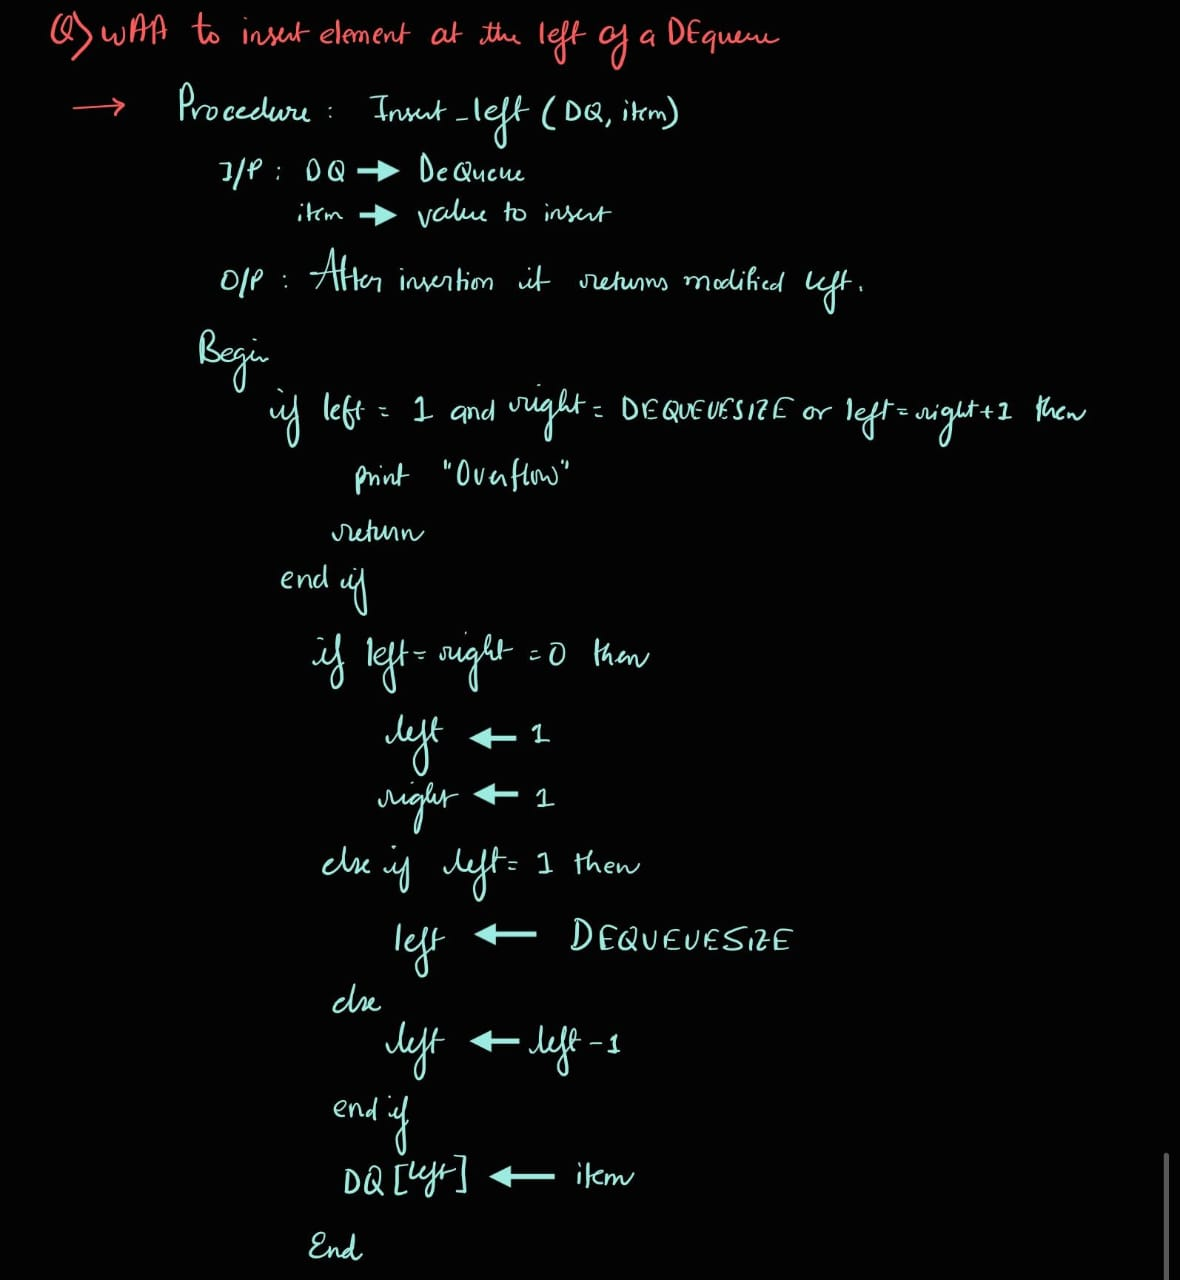 Q) WAA to insert element at the left of a DEqueue
→ Procedure : Insert_left (DQ, item)
I/P : DQ → DeQueue
item → value to insert
O/P : After insertion it returns modified left.
Begin
if left = 1 and right = DEQUEUESIZE or left = right + 1 then
print "Overflow"
return
end if
if left = right = 0 then
left ← 1
right ← 1
else if left = 1 then
left ← DEQUEUESIZE
else
left ← left - 1
end if
DQ [left] ← item
End